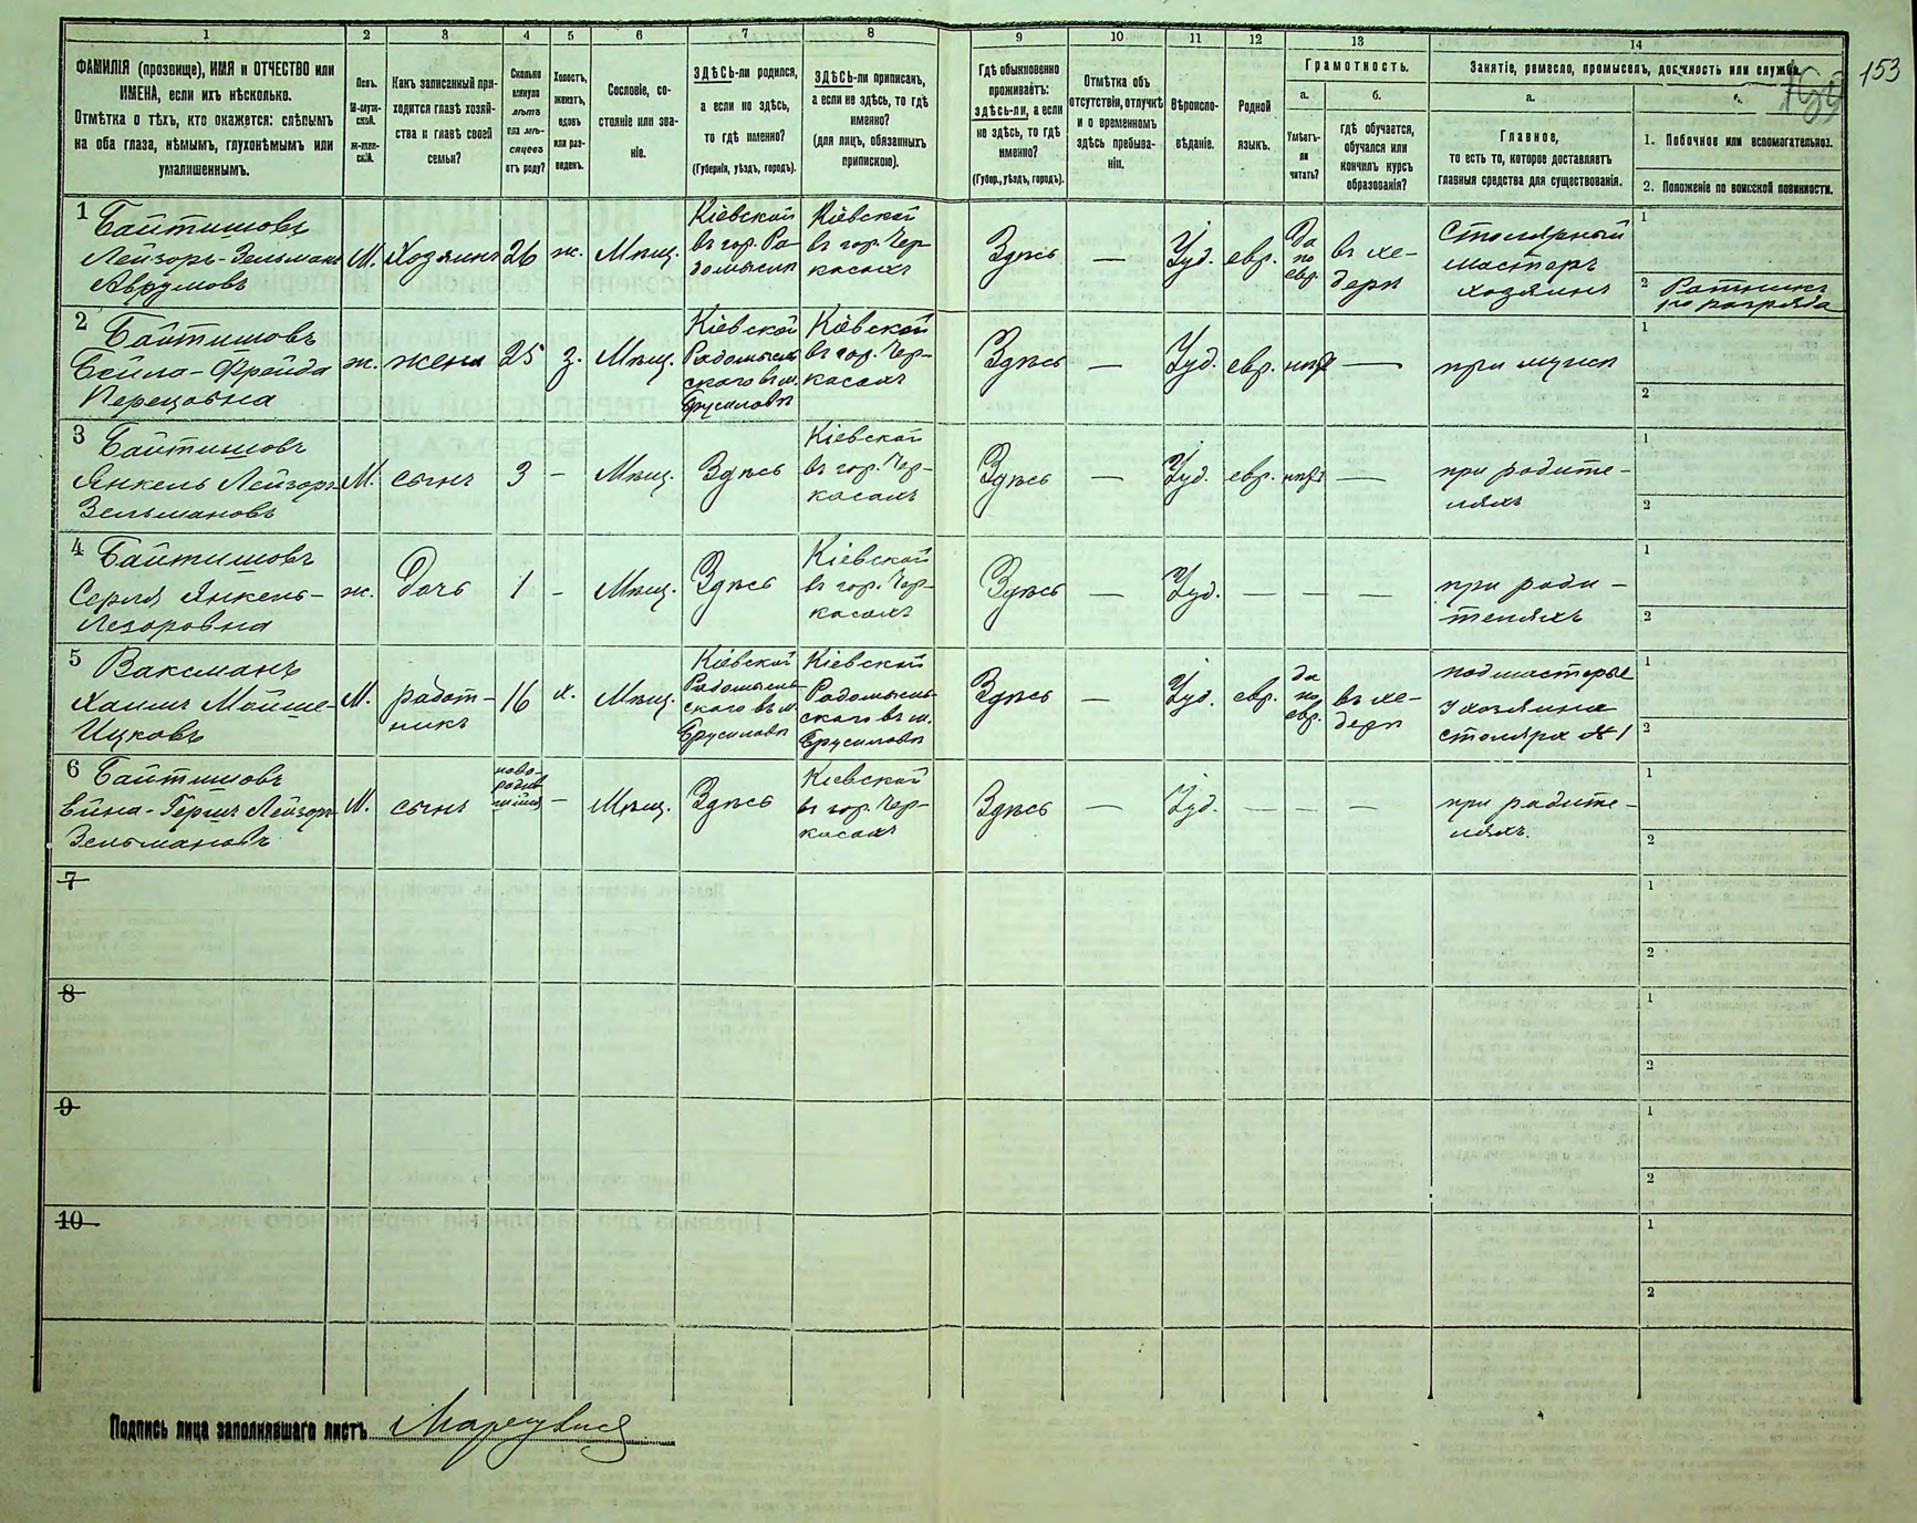 153
1
2
3
4
5
6
7
8
9
10
11
12
13
14
ФАМИЛІЯ (прозвище), ИМЯ и ОТЧЕСТВО или
ИМЕНА, если ихъ нѣсколько.
Отмѣтка о тѣхъ, кто окажется: слѣпымъ
на оба глаза, нѣмымъ, глухонѣмымъ или
умалишеннымъ.
Полъ.
М-муж-
ской.
ж-жен-
скій.
Какъ записанный при-
ходится главѣ хозяй-
ства и главѣ своей
семьи?
Сколько
минуло
лѣтъ
или мѣ-
сяцевъ
отъ роду?
Холостъ,
женатъ,
вдовъ
или раз-
веденъ.
Сословіе, со-
стояніе или зва-
ніе.
ЗДѢСЬ-ли родился,
а если не здѣсь,
то гдѣ именно?
(Губернія, уѣздъ, городъ).
ЗДѢСЬ-ли приписанъ,
а если не здѣсь, то гдѣ
именно?
(для лицъ, обязанныхъ
припискою).
Гдѣ обыкновенно
проживаетъ:
здѣсь-ли, а если
не здѣсь, то гдѣ
именно?
(Губер., уѣздъ, городъ).
Отмѣтка объ
отсутствіи, отлучкѣ
и о временномъ
здѣсь пребыва-
ніи.
Вѣроиспо-
вѣданіе.
Родной
языкъ.
Грамотность.
а.
Умѣетъ-
ли
читать?
б.
гдѣ обучается,
обучался или
кончилъ курсъ
образованія?
Занятіе, ремесло, промыселъ, должность или служба.
а.
Главное,
то есть то, которое доставляетъ
главныя средства для существованія.
1. Побочное или вспомогательное.
2. Положеніе по воинской повинности.
1
Байтишовъ
Лейзоръ-Зельманъ
Аврумовъ
М.
Хозяинъ
26
ж.
Мѣщ.
Кіевской
въ гор. Ра-
домыслѣ
Кіевской
въ гор. Чер-
касахъ
Здѣсь
—
Іуд.
евр.
да
по
евр.
въ хе-
дерѣ
Столярный
мастеръ
хозяинъ
1
2 Ратникъ
разряда
2
Байтишовъ
Бейла-Фрейда
Перецовна
ж.
жена
25
з.
Мѣщ.
Кіевской
Радомысль
скаго въ м.
Брусиловѣ
Кіевской
въ гор. Чер-
касахъ
Здѣсь
—
Іуд.
евр.
нѣтъ
—
при мужѣ
1
2
3
Байтишовъ
Янкель Лейзоръ-
Зельмановъ
М.
сынъ
3
-
Мѣщ.
Здѣсь
Кіевской
въ гор. Чер-
касахъ
Здѣсь
—
Іуд.
евр.
нѣтъ
—
при родите-
ляхъ
1
2
4
Байтишовъ
Серля Янкель-
Лезоровна
ж.
Дочь
1
-
Мѣщ.
Здѣсь
Кіевской
въ гор. Чер-
касахъ
Здѣсь
—
Іуд.
—
—
—
при роди-
теляхъ
1
2
5
Ваксманъ
Хаимъ Мойше-
Ицковъ
М.
работ-
никъ
16
х.
Мѣщ.
Кіевской
Радомысль-
скаго въ м.
Брусиловѣ
Кіевской
Радомысль-
скаго въ м.
Брусиловѣ
Здѣсь
—
Іуд.
евр.
да
по
евр.
въ хе-
дерѣ
подмастерье
у хозяина
столяра № 1
1
2
6
Байтишовъ
Герш Лейзоръ-
Зельмановъ
М.
сынъ
ново-
родив
шійся
-
Мѣщ.
Здѣсь
Кіевской
въ гор. Чер-
касахъ
Здѣсь
—
Іуд.
—
—
—
при родите-
ляхъ.
1
2
7
1
2
8
1
2
9
1
2
10
1
2
Подпись лица заполнявшаго листъ